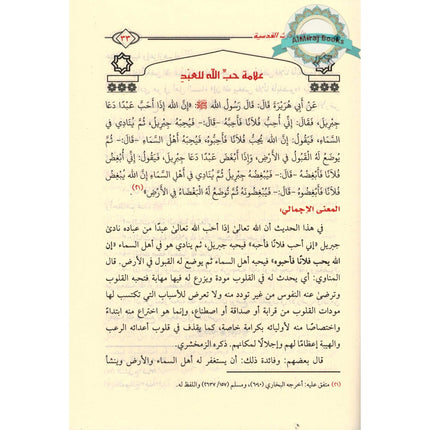 ٣٣
القدسية
AlMiraj Books
علامة حبِّ اللَّه للعبد
عَنْ أَبِي هُرَيْرَةَ قَالَ: قَالَ رَسُولُ اللهِ ﷺ: «إِنَّ اللهَ إِذَا أَحَبَّ عَبْدًا دَعَا
جِبْرِيلَ، فَقَالَ: إِنِّي أُحِبُّ فُلَانًا فَأَحِبَّهُ -قَالَ:- فَيُحِبُّهُ جِبْرِيلُ، ثُمَّ يُنَادِي فِي
السَّمَاءِ، فَيَقُولُ: إِنَّ اللهَ يُحِبُّ فُلَانًا فَأَحِبُّوهُ، فَيُحِبُّهُ أَهْلُ السَّمَاءِ -قَالَ:- ثُمَّ
يُوضَعُ لَهُ الْقَبُولُ فِي الْأَرْضِ، وَإِذَا أَبْغَضَ عَبْدًا دَعَا جِبْرِيلَ، فَيَقُولُ: إِنِّي أُبْغِضُ
فُلَانًا فَأَبْغِضْهُ -قَالَ:- فَيُبْغِضُهُ جِبْرِيلُ ثُمَّ يُنَادِي فِي أَهْلِ السَّمَاءِ إِنَّ اللهَ يُبْغِضُ
فُلَانًا فَأَبْغِضُوهُ -قَالَ:- فَيُبْغِضُونَهُ ثُمَّ تُوضَعُ لَهُ الْبَغْضَاءُ فِي الْأَرْضِ»(٣١)
المعنى الإجمالي:
في هذا الحديث أن الله تعالى إذا أحب الله تعالى عبدًا من عباده نادى
جبريل «إني أحب فلانًا فأحبه» فيحبه جبريل، ثم ينادي هو في أهل السماء «إن
الله يحب فلانًا فأحبوه» فيحبه أهل السماء ثم يوضع له القبول في الأرض. قال
المناوي: أي يحدث له في القلوب مودة ويزرع له فيها مهابة فتحبه القلوب
وترضى عنه النفوس من غير تودد منه ولا تعرض للأسباب التي تكتسب لها
مودات القلوب من قرابة أو صداقة أو اصطناع، وإنما هو اختراع منه ابتداءً
واختصاصًا منه لأوليائه بكرامة خاصة، كما يقذف في قلوب أعدائه الرعب
والهيبة إعظامًا لهم وإجلالًا لمكانهم. ذكره الزمخشري.
قال بعضهم: وفائدة ذلك: أن يستغفر له أهل السماء والأرض وينشأ
(٣١) متفق عليه: أخرجه البخاري (٦٩٠)، ومسلم (١٥٧/ ٢٦٣٧) واللفظ له.